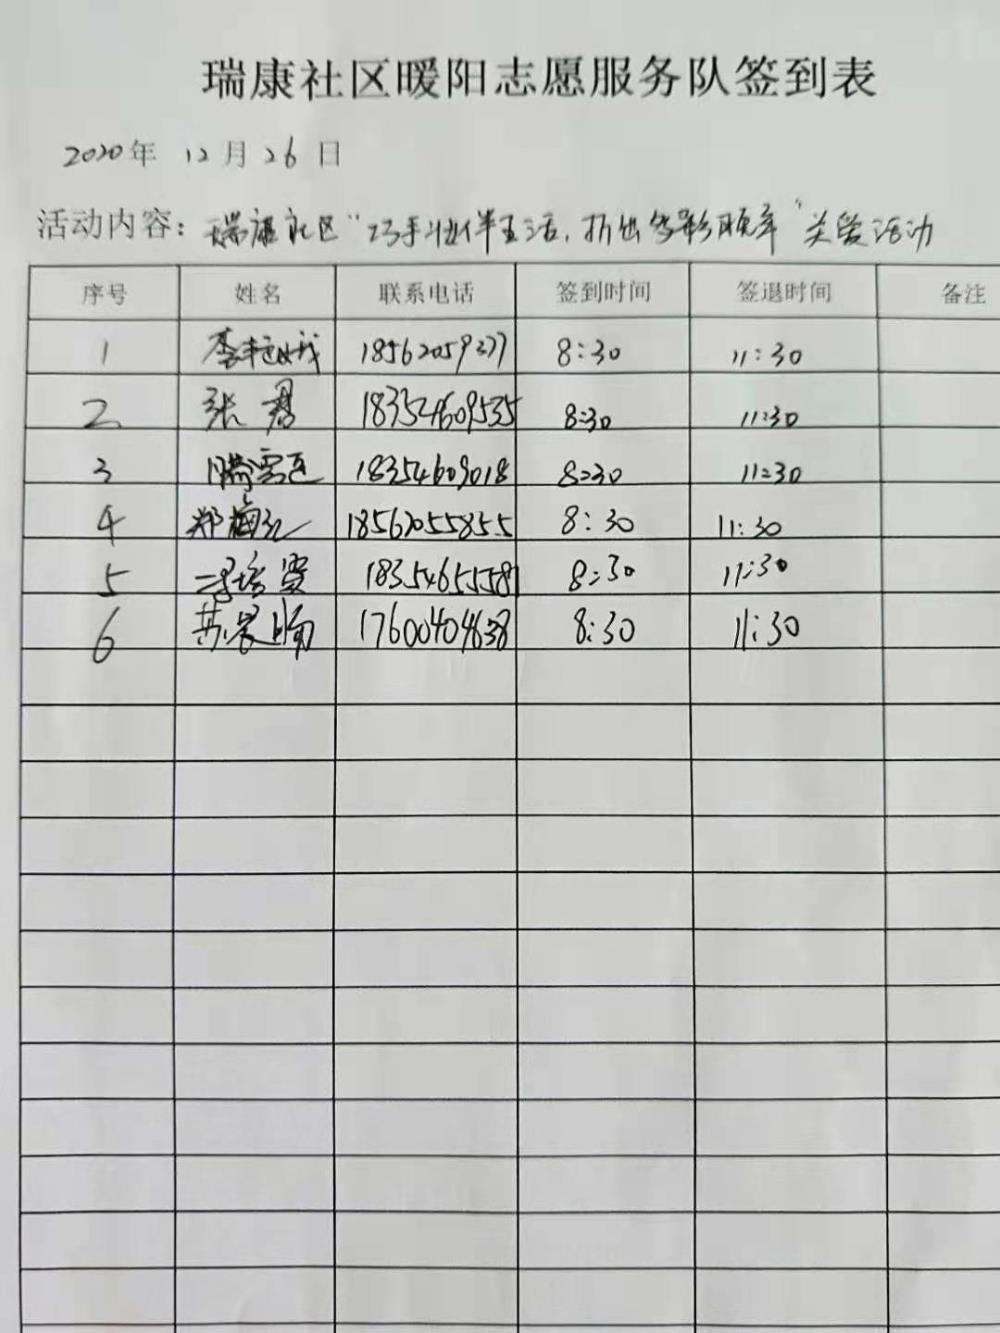 瑞康社区暖阳志愿服务队签到表
2020年 12月26日
活动内容：瑞康社区"巧手壮伴生活，折出多彩晚年"关爱活动
序号 姓名 联系电话 签到时间 签退时间 备注
1 18562059377 8:30 11:30
2 张君 18354609535 8:30 11:30
3 18354609018 8:30 11:30
4 郑梅红 18562055855 8:30 11:30
5 18354655581 8:30 11:30
6 苏晨 17600404638 8:30 11:30